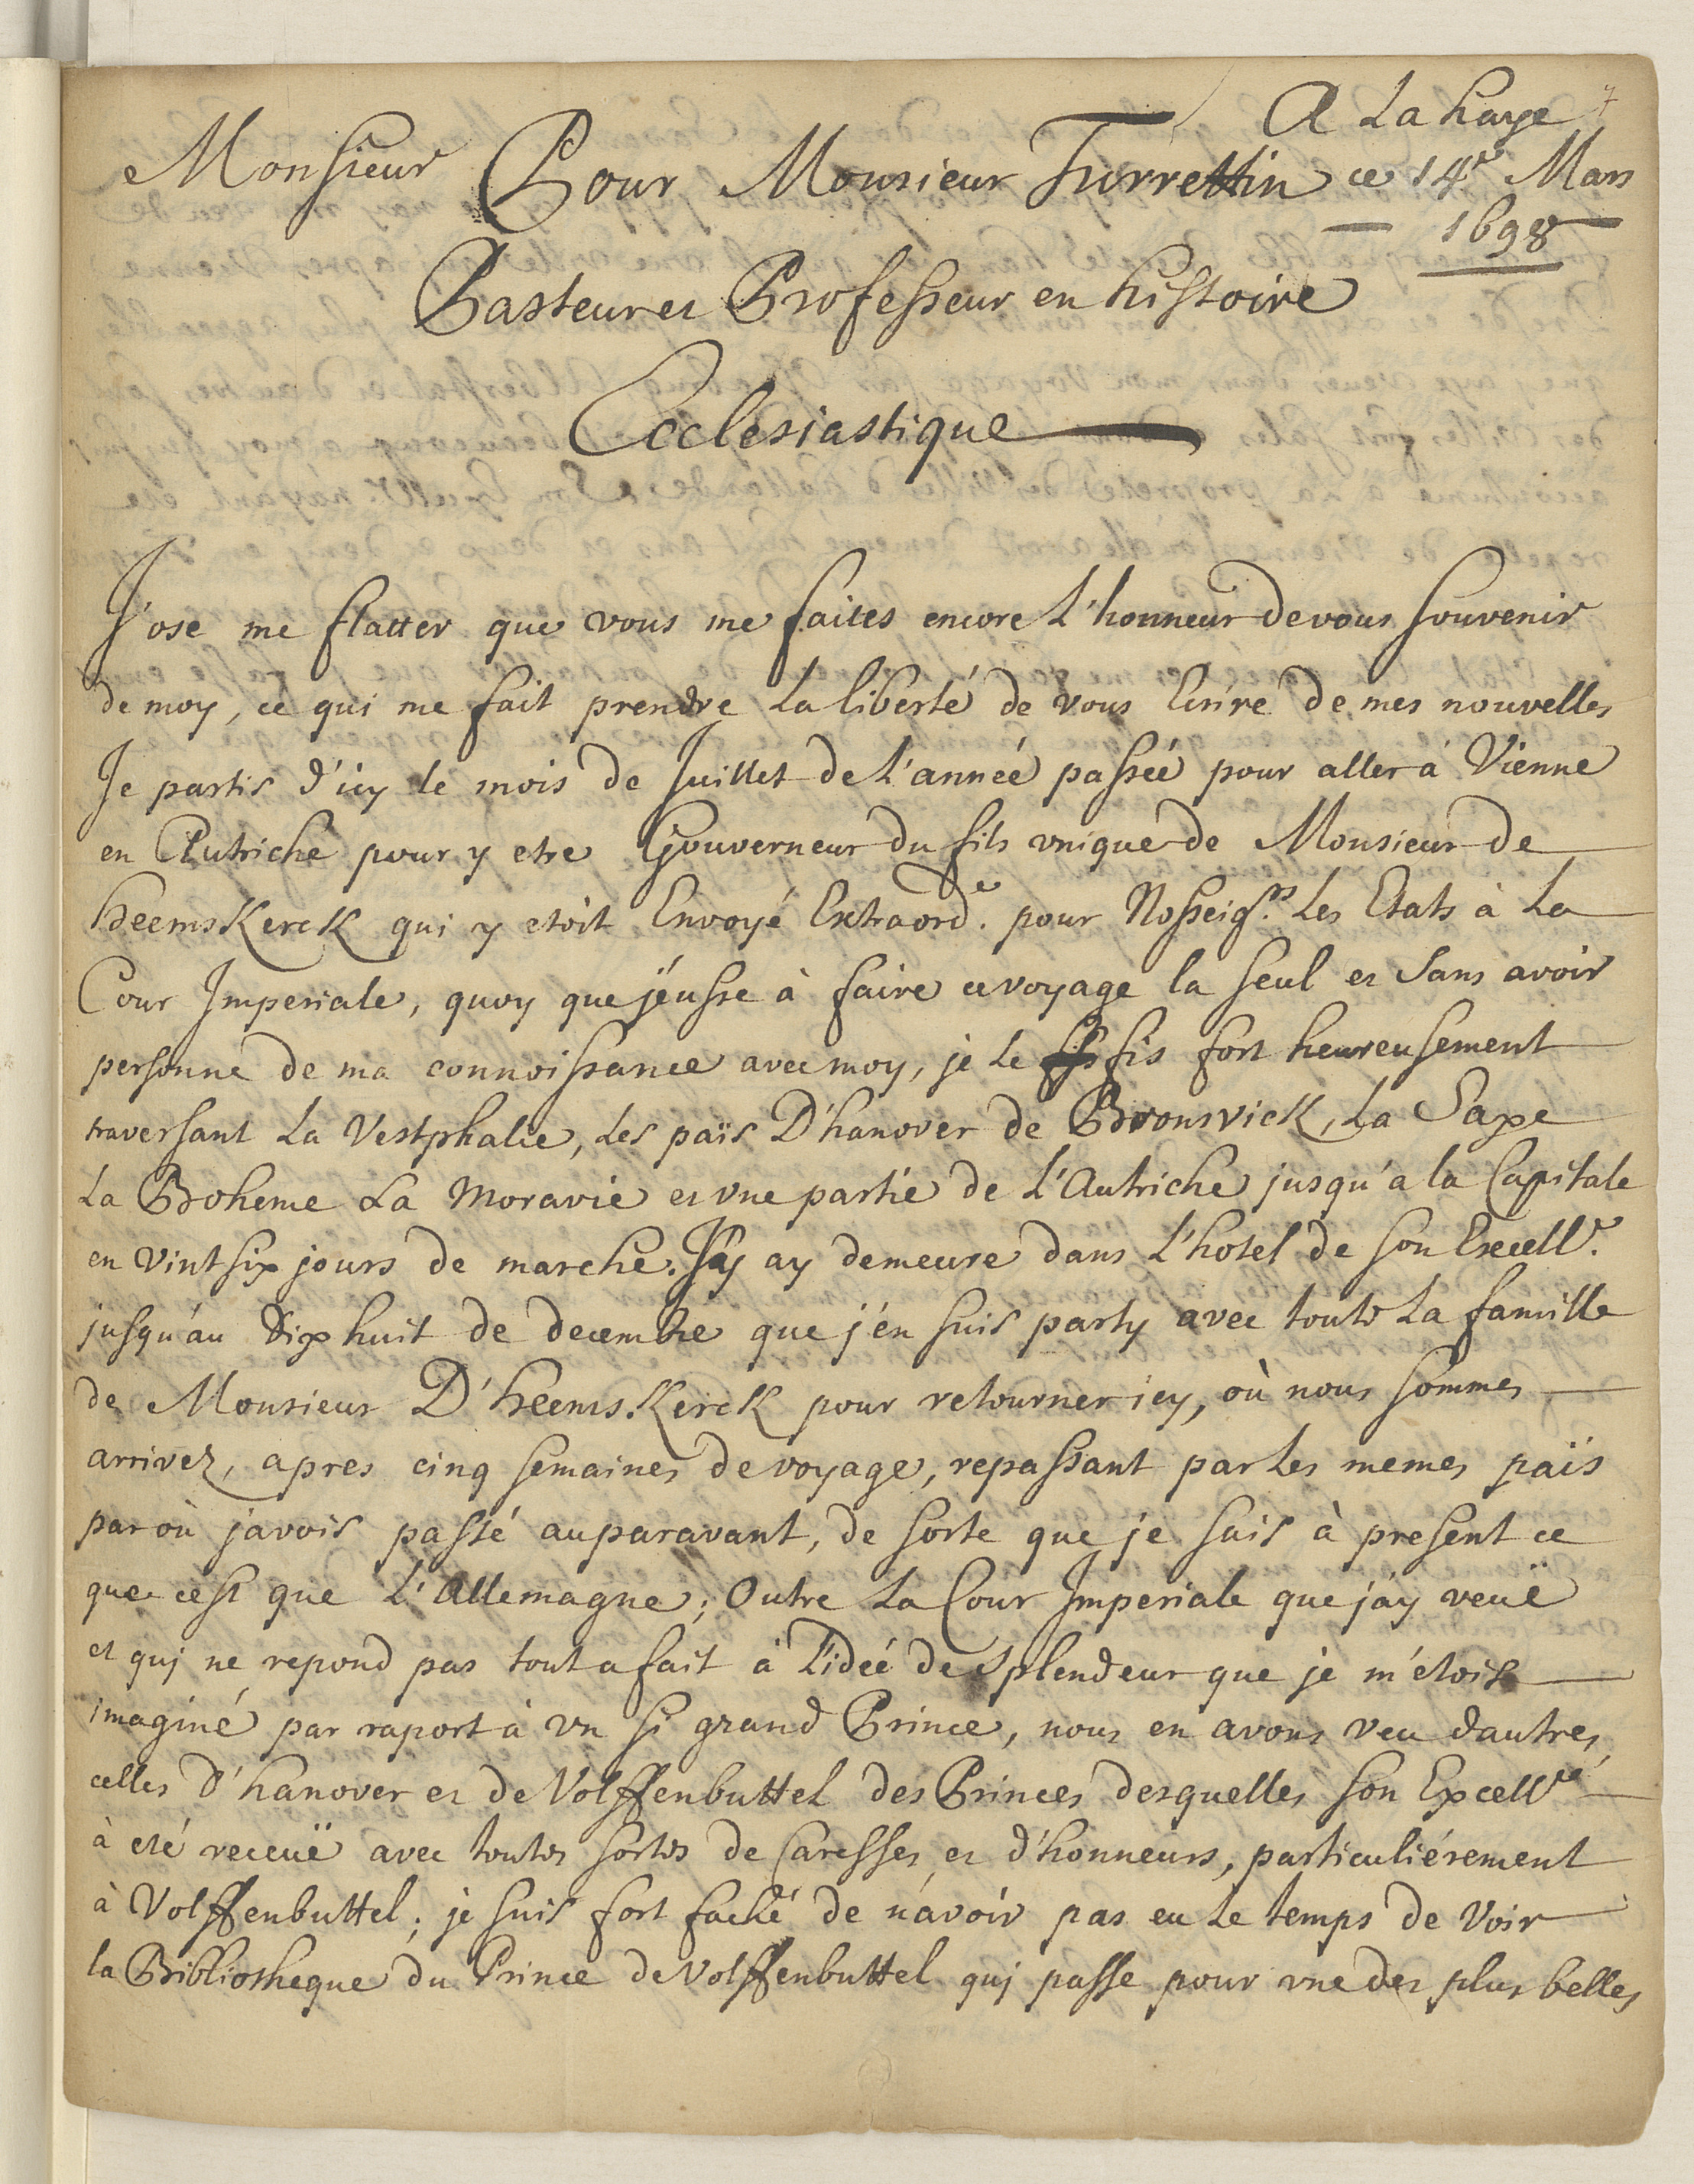 A La haye
Monsieur Pour Monsieur Turrettin ce 14e Mars
1698
Pasteur et Professeur en histoire
Ecclesiastique
J'ose me flatter que vous me faites encore l'honneur de vous souvenir
de moy, ce qui me fait prendre la liberté de vous Ecrire de mes nouvelles
Je partis d'icy le mois de Juillet de l'année passée pour aller à Vienne
en Autriche pour y etre Gouverneur du fils vnique de Monsieur de
heemsKercK qui y etoit Envoyé Extraorde. pour Nosseigrs. Les Etats à La
Cour Imperiale, quoy que j'eusse à faire ce voyage la seul et sans avoir
personne de ma connoissance avec moy, je le fis fort heureusement
traversant La Vestphalie, Les païs D'hanover de BronsvicK, La Saxe
La Boheme La Moravie et vne partie de L'Autriche jusqu'a la Capitale
en vint six jours de marche. J'y ay demeure dans L'hotel de son Excelle.
jusqu'au Dix huit de decembre que j'en suis party avec toute La famille
de Monsieur D'heems.KercK pour retourner icy, où nous sommes
arrivez, apres cinq semaines de voyage, repassant par Les memes païs
par où javois passé auparavant, de sorte que je sais à present ce
que cest que L'Allemagne; Outre La Cour Imperiale que j'ay veuë
et quj ne repond pas tout a fait à L'idée de splendeur que je m'etois
imaginé par raport à vn si grand Prince, nous en avons veu dautres,
celles D'hanover et de Volffenbuttel des Princes desquelles son Excelle
à eté receuë avec toutes sortes de Caresses et d'honneurs, particuliérement
à Volffenbuttel; je suis fort faché de n'avoir pas eu Le temps de Voir
la Bibliotheque du Prince de Volffenbuttel quj passe pour vne des plus belles